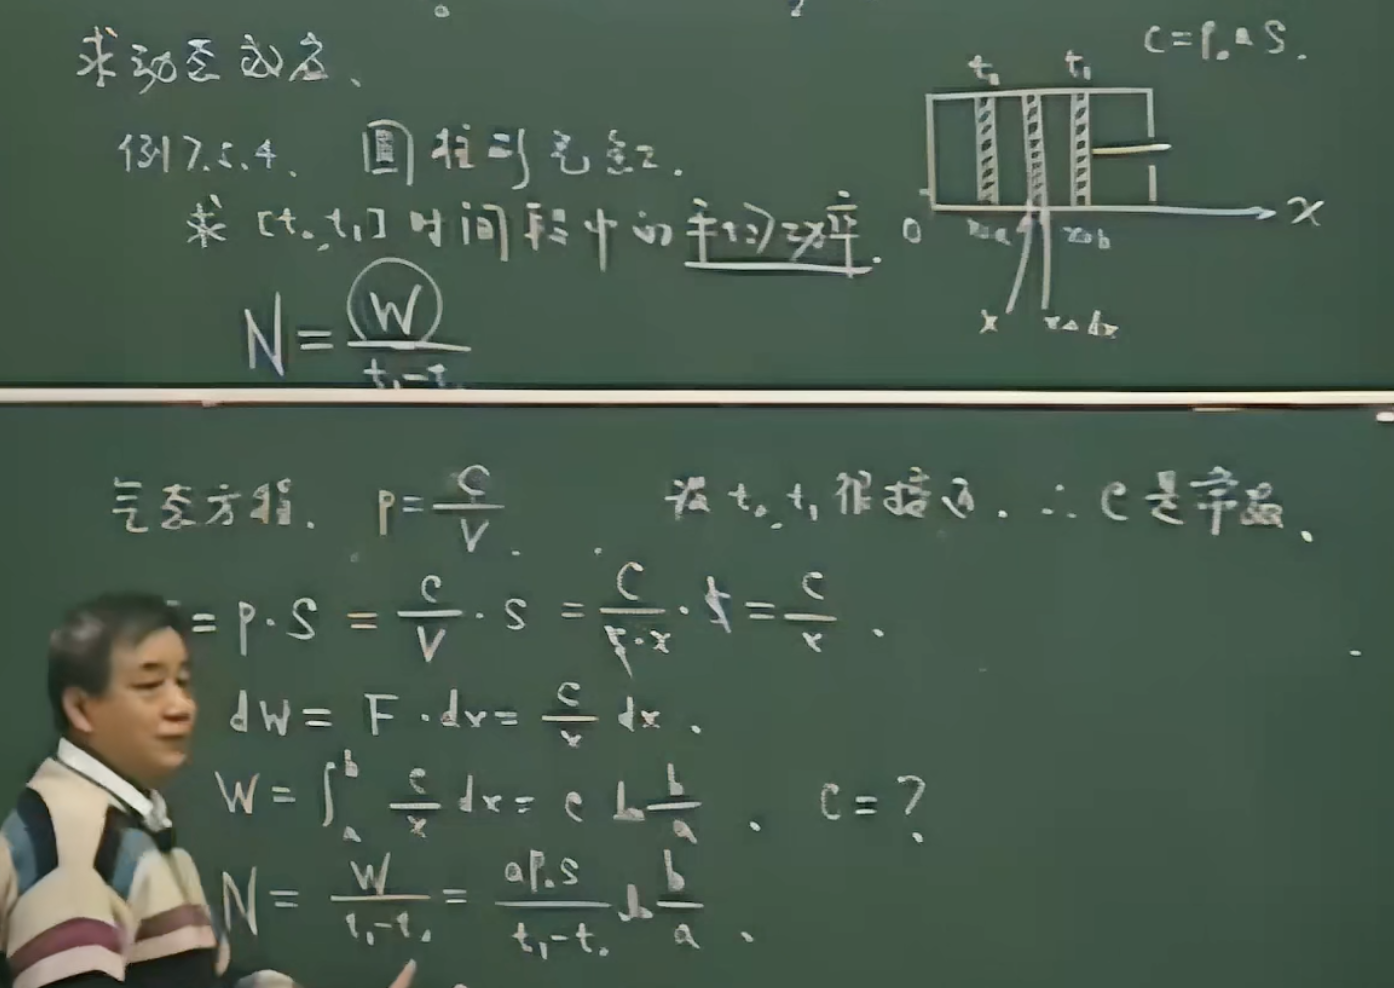 求动态效应、
例7.5.4. 圆柱形气缸.
求[t₀,t₁]时间段中的平均功率.
N=W/(t₁-t₀)
C=P₀aS.
t₀ t₁
0 x=a x=b x
x x+dx
气态方程. P=C/V. 设t₀,t₁很接近.∴C是常数.
=P·S=C/V·S=C/(S·x)·S=C/x.
dW=F·dx=C/x dx.
W=∫ₐᵇ C/x dx=C ln b/a. C=?
N=W/(t₁-t₀)=aP₀S/(t₁-t₀) ln b/a.